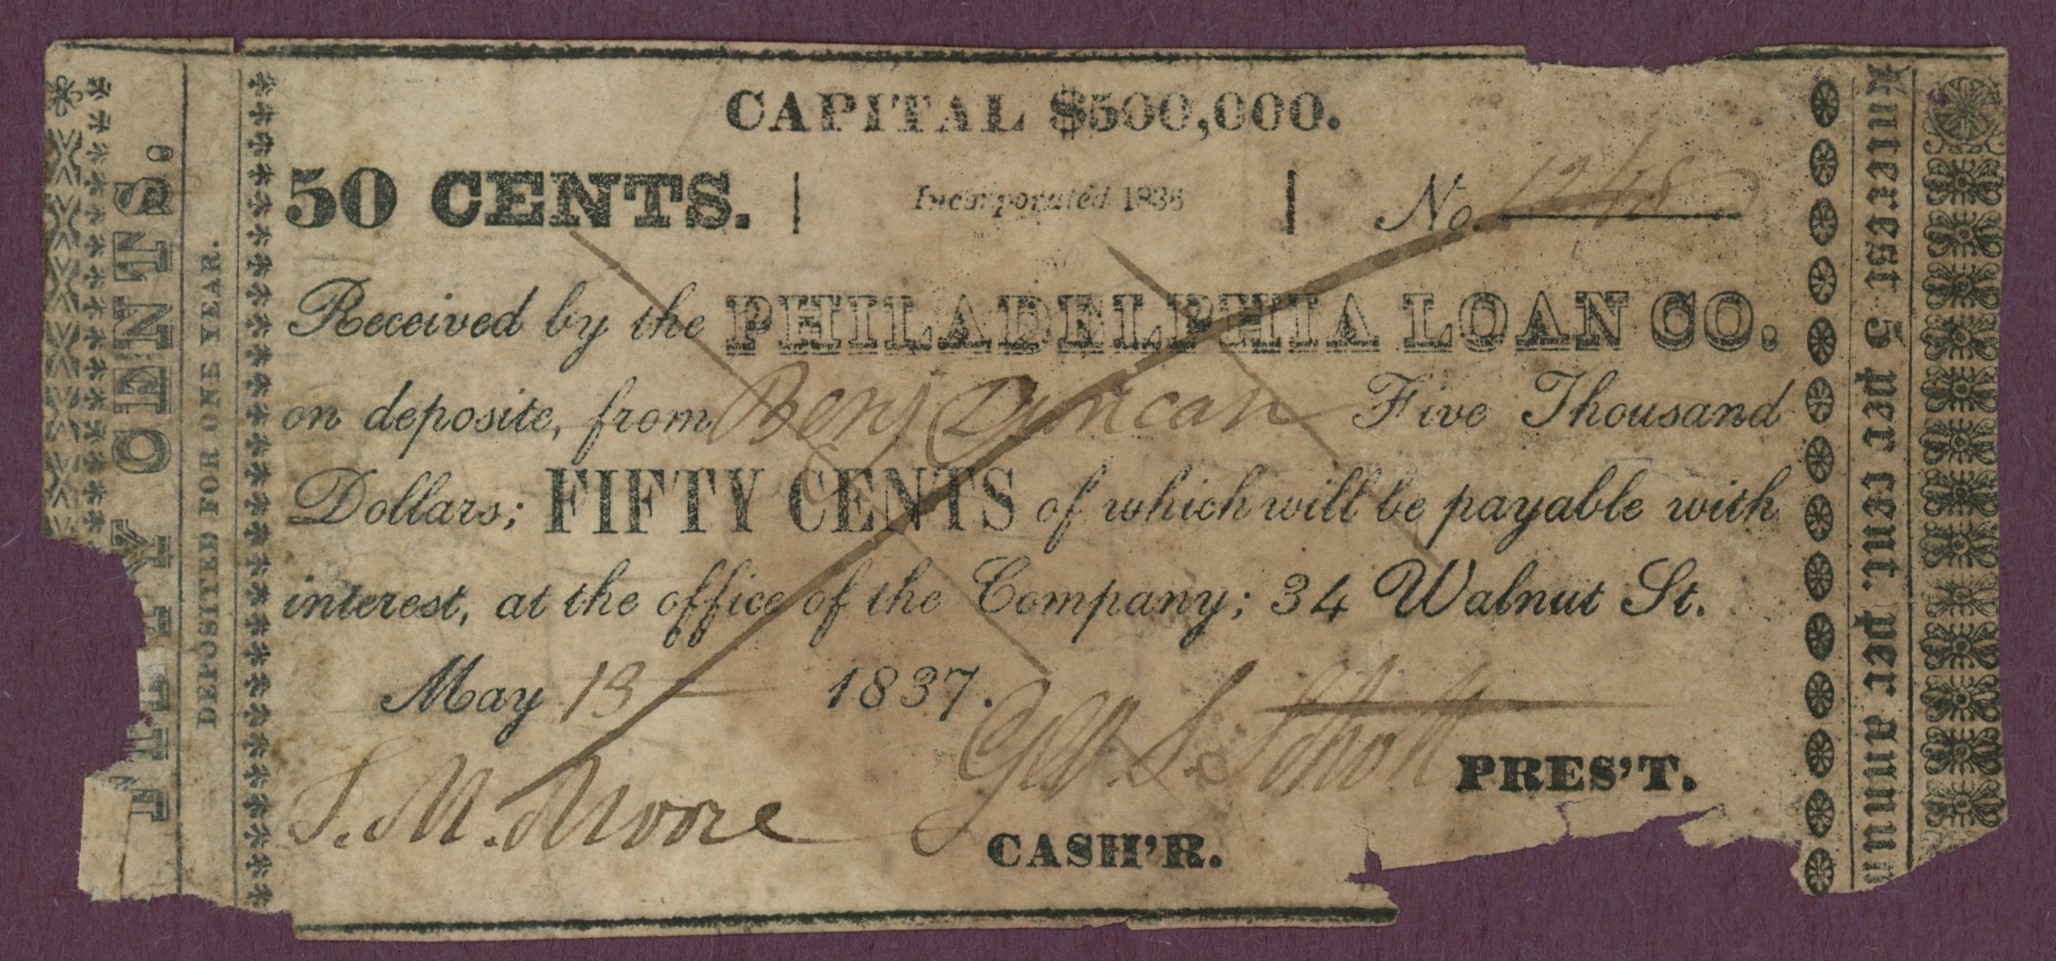 CAPITAL $500,000.
50 CENTS. | Incorporated 1836 | No.
Received by the PHILADELPHIA LOAN CO.
on deposite, from Benj Duncan Five Thousand
Dollars; FIFTY CENTS of which will be payable with
interest, at the office of the Company; 34 Walnut St.
May 13 1837.
Geo. S. Schott PRES'T.
J. M. Moore CASH'R.
CENTS.
DEPOSITED FOR ONE YEAR.
Interest 5 per cent. per annum